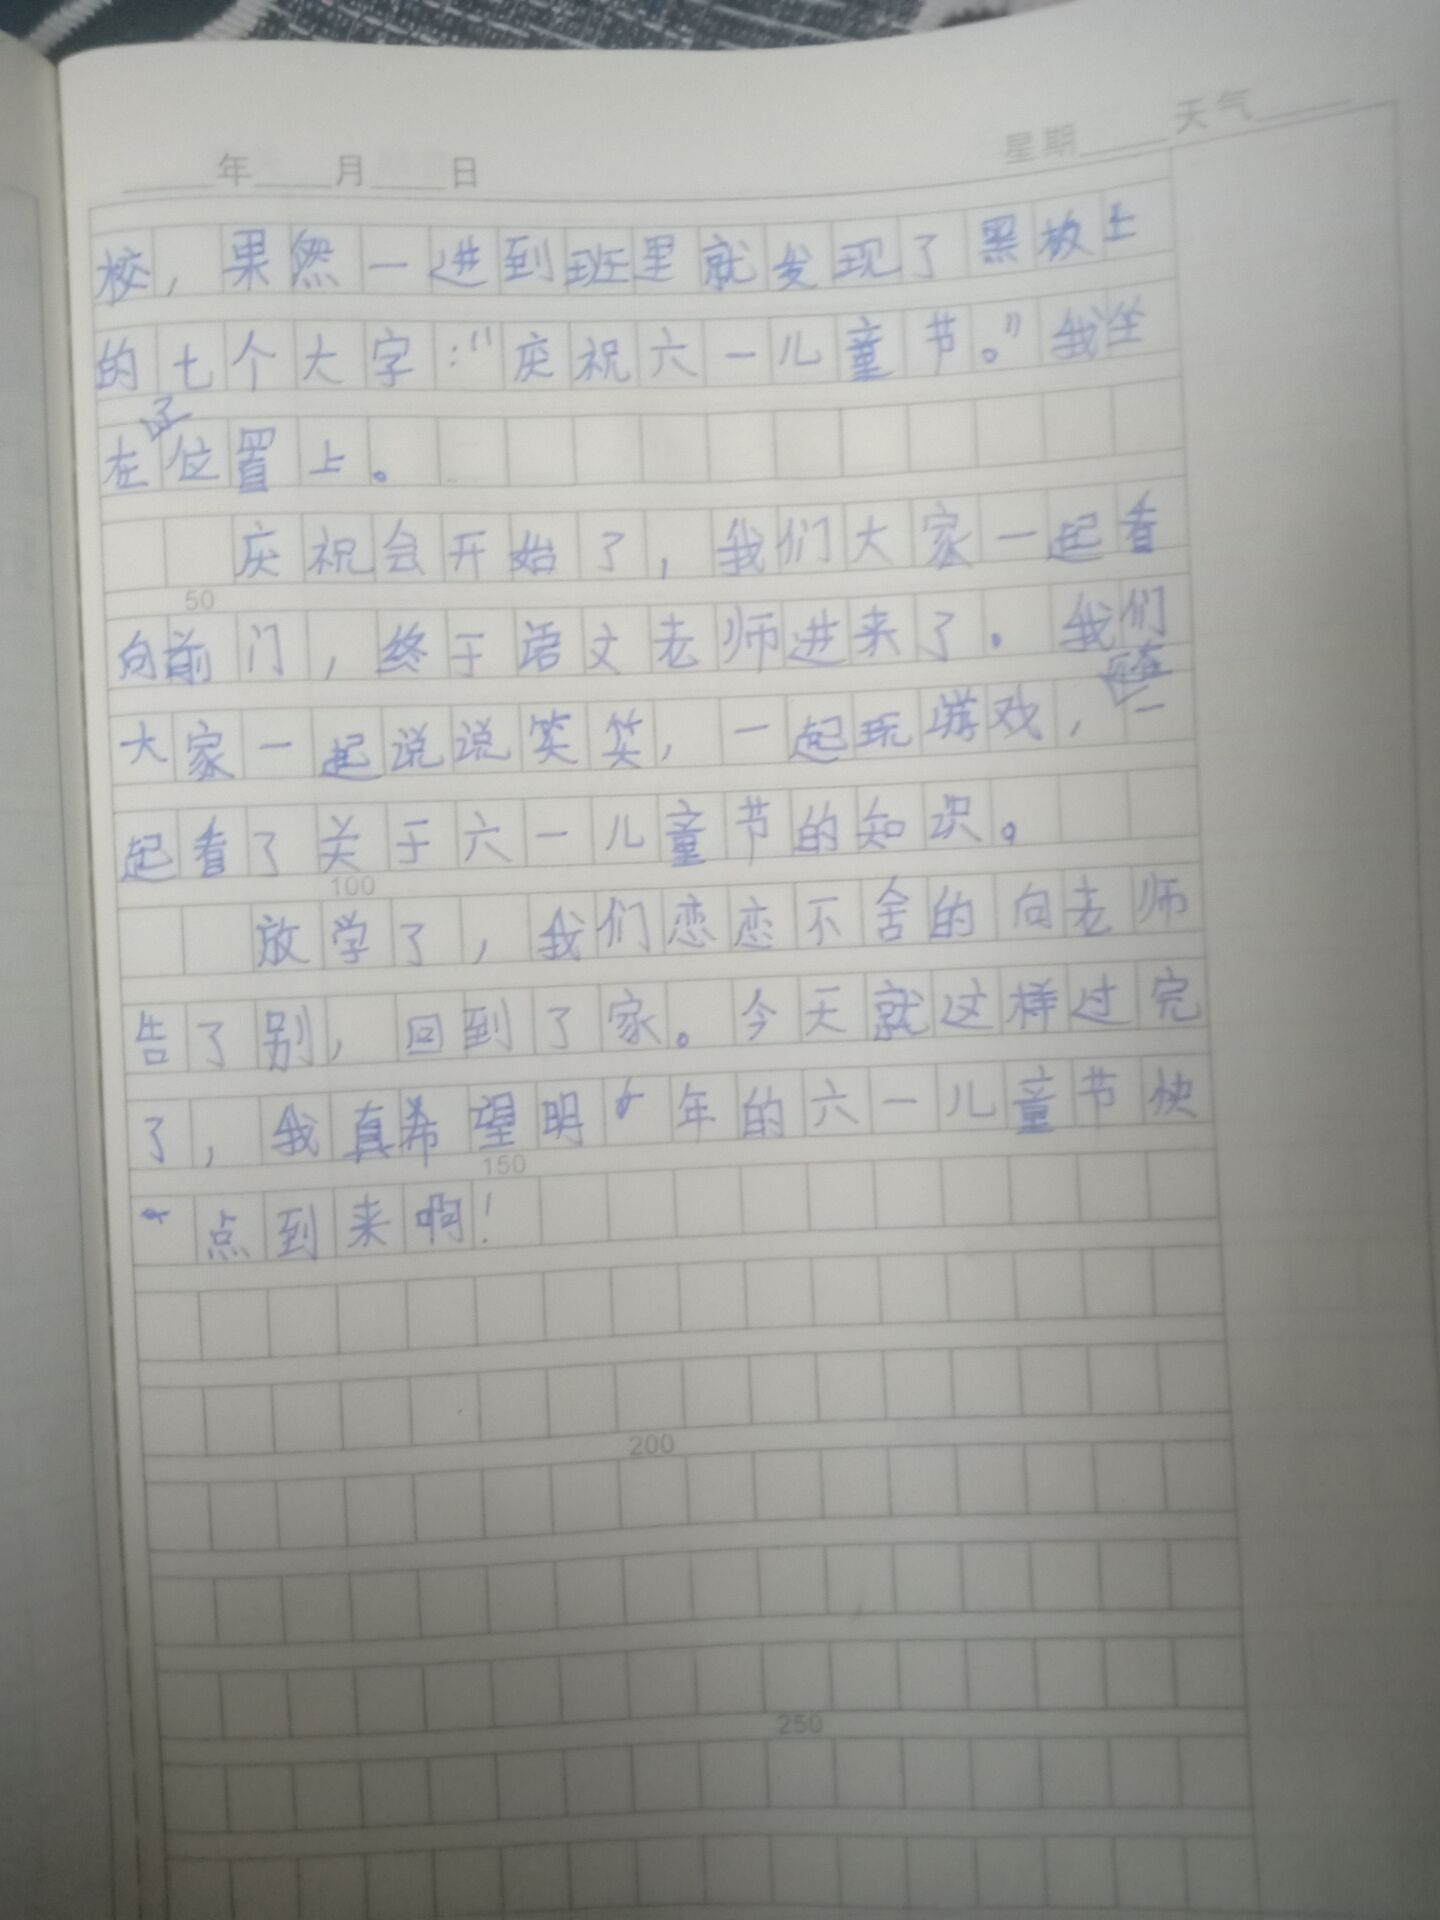 年 月 日 星期 天气
校，果然一进到班里就发现了黑板上
的七个大字：“庆祝六一儿童节。”我坐
在了位置上。
庆祝会开始了，我们大家一起看
50
向前门，终于语文老师进来了。我们
大家一起说说笑笑，一起玩游戏，一
起看了关于六一儿童节的知识。
100
放学了，我们恋恋不舍的向老师
告了别，回到了家。今天就这样过完
了，我真希望明年的六一儿童节快
150
点到来啊！
200
250